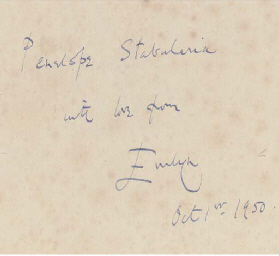 Penelope Stabularia
with love from
Evelyn
Oct 1st 1950.